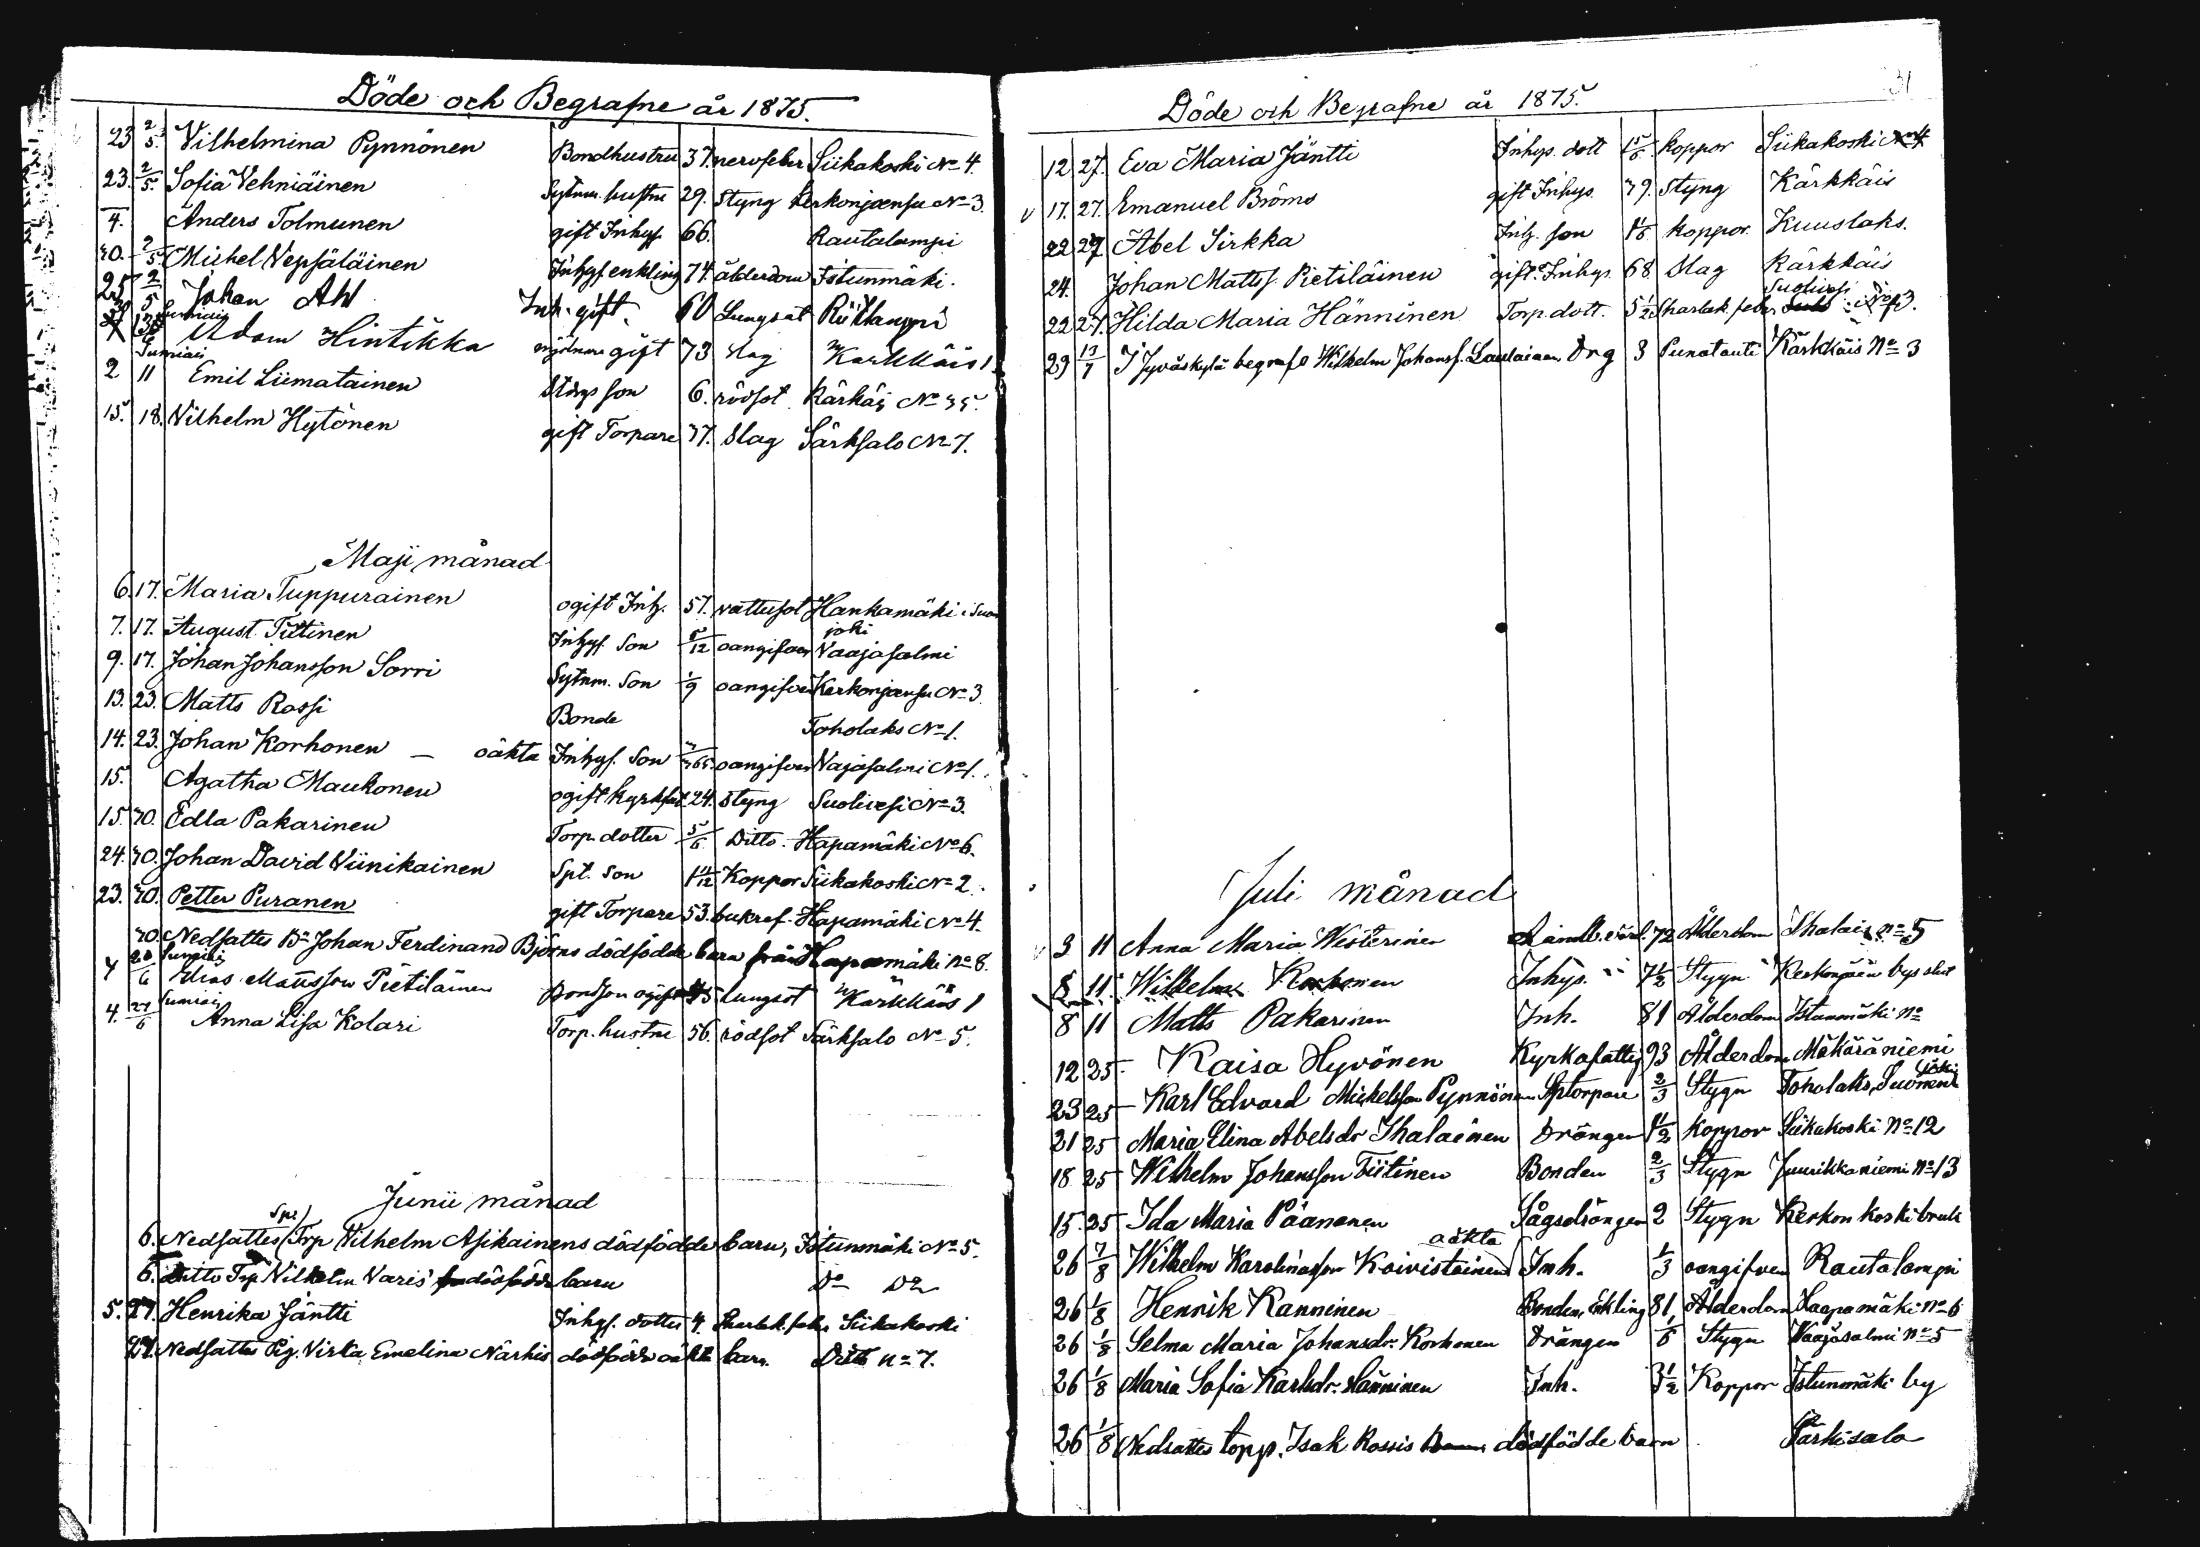 Döde och Begrafne år 1875.
23 2/5 Vilhelmina Pynnönen Bondhustru 37. nervfeber Siikakoski No 4.
23. 2/5 Sofia Vehniäinen Sytnm. hustru 29. Styng Kerkonjoensu No 3.
4. Anders Tolmunen gift Inhys 66. Rautalampi
30. 2/5 Michel Vepsäläinen Inhys enkling 74. ålderdom Istunmäki.
25 2/5 Johan Ahl Inh. gift. 60 Lungsot
Sumiais
Adam Hintikka gift 73 slag Karkkäis 1
Sumiais
2 11 Emil Liimatainen son 6. rödsot Kärkäis No 35.
15. 18. Vilhelm Hytönen gift Torpare 77. Slag Särksalo No 7.
Maji månad
6. 17. Maria Tuppurainen ogift Inh. 57. vattusot Hankamäki i Suon
joki
7. 17. August Tiitinen Inhys. Son 5/12 oangifven Vaajasalmi
9. 17. Johan Johansson Sorri Sytnm. Son 1/9 oangifven Kerkonjoensu No 3.
13. 23. Matts Rossi Bonde Toholaks No 1.
14. 23. Johan Korhonen — oäkta Inhys. Son oangifven Vajasalmi No 1.
15. Agatha Maukonen ogift kyrkfat 24. Styng Suolivesi No 3.
15. 30. Edla Pakarinen Torp. dotter 5/6 Ditto. Hapamäki No 6.
24. 30. Johan David Viinikainen Spt. Son 1 11/12 Koppor Siikakoski No 2.
23. 30. Petter Puranen gift Torpare 53. bukref. Hapamäki No 4.
30. Nedsattes Bd Johan Ferdinand Björns dödfödda barn från Hapamäki No 8.
Sumiais
20/6 Elias Mattsson Pietiläinen Bondson ogift lungsot Karkkäis 1
Sumiais
4. 27/6 Anna Lisa Kolari Torp. hustru 56. rödsot Särksalo No 5.
Junii månad
6. Nedsattes Trp Vilhelm Asikainens dödfödda barn, Istunmäki No 5.
6. Ditto Trp Vilhelm Varis' dödfödda barn Do Do
5. 27. Henrika Jäntti Inhys. dotter 4. Sharlak. feber Siikakoski
27. Nedsattes Pig. Virka Emelina Närhis dödfödda oäkta barn. Ditto No 7.
31
Döde och Begrafne år 1875.
12 27. Eva Maria Jäntti Inhys. dott koppor Siikakoski No 4
17. 27. Emanuel Bröms gift Inhys. 79. Styng Kärkkäis
22 27 Abel Sirkka Inh. son koppor. Kuuslaks.
24. Johan Mattss. Pietiläinen gift. Inhys. 68 Slag Kärkkäis
Suolivesi
22 27. Hilda Maria Hänninen Torp. dott. 5 1/2 Sharlak. feber No 3.
29 13/7 I Jyväskylä begrafd Wilhelm Johanss. Laulainen Drg 3 Punatauti Kärkkäis No 3
Juli månad
3 11 Anna Maria Westerinen 72 Ålderdom Ihalais No 5
8 11 Wilhelm Korhonen Inhys. 7 1/2 Stygn Kerkonjoen bys
8 11 Matts Pakarinen Inh. 81 Ålderdom Istunmäki No
12 25 Kaisa Hyvönen Kyrkofattig 93 Ålderdom Mäkäräniemi
joki
23 25 Karl Edvard Mickelsson Pynnönen Sptorpare 2/3 Stygn Toholaks, Suonen
21 25 Maria Elina Abelsdr Ihalainen Drängen 1 1/2 koppor Siikakoski No 12
18 25 Wilhelm Johansson Tiitinen Bonden 2/3 Stygn Juurikkaniemi No 13
15 25 Ida Maria Päänanen Sågsdrängen 2 Stygn Kerkonkoski bruk
oäkta
26 7/8 Wilhelm Karolinasson Koivistoinen Inh. 1/3 oangifven Rautalampi
26 1/8 Henrik Ranninen Bonden, Enkling 81 Ålderdom Haapamäki No 6
26 1/8 Selma Maria Johansdr. Korhonen Drängen Stygn Vaajasalmi No 5
26 1/8 Maria Sofia Karlsdr. Hänninen Inh. 3 1/2 Koppor Istunmäki by
26 1/8 Nedsattes torpp. Isak Rossis dödfödde barn Särkisalo